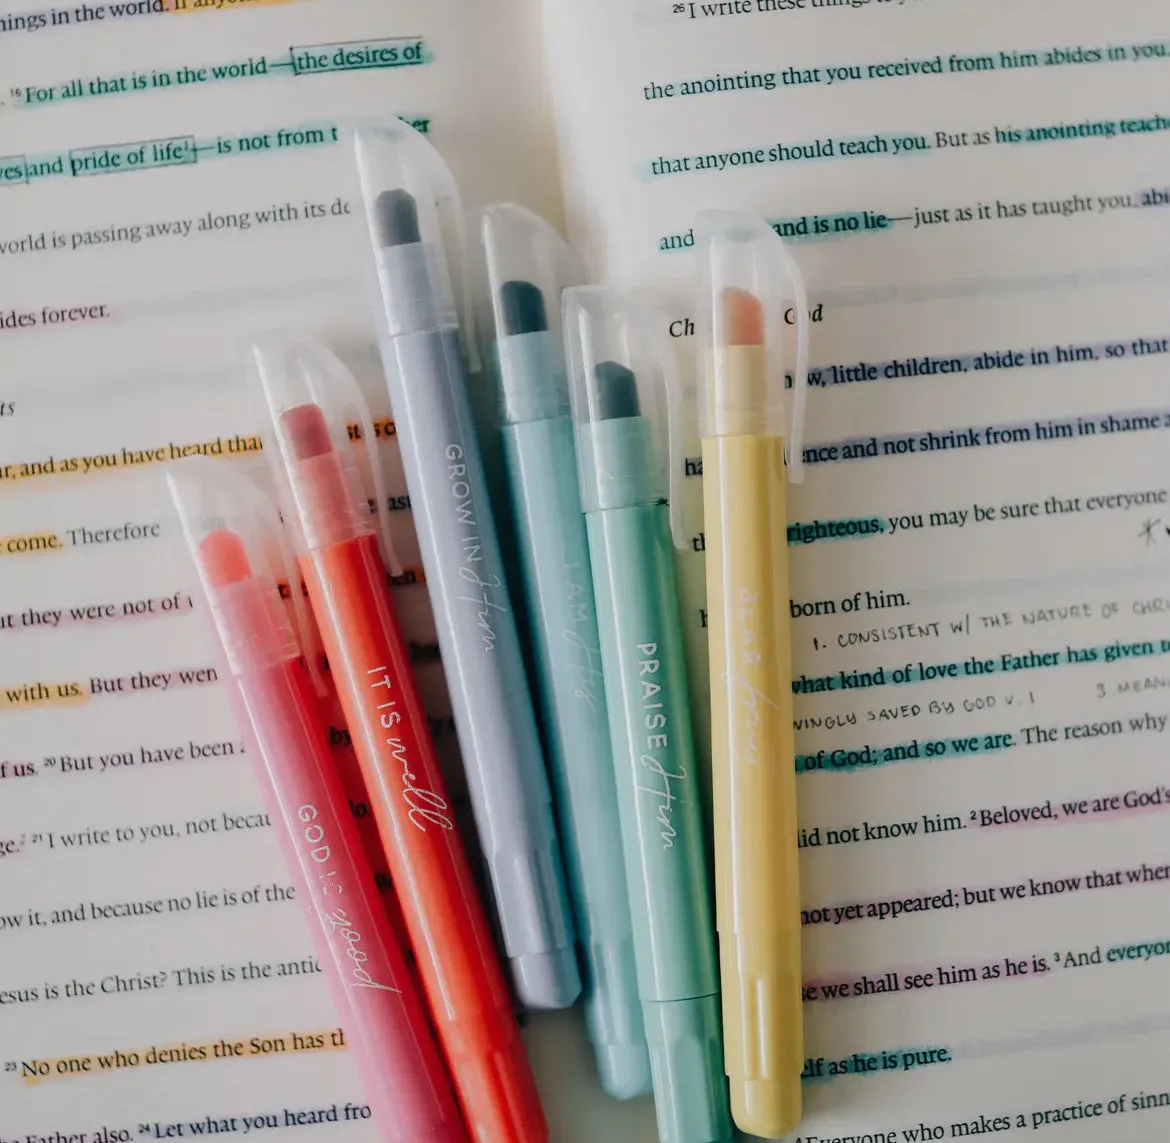 ings in the world. If
¹⁶For all that is in the world—the desires of
and pride of life¹—is not from t
world is passing away along with its de
ides forever.
ts
r, and as you have heard tha
come. Therefore
ut they were not of
with us. But they wen
f us. ²⁰But you have been
²¹I write to you, not becau
ow it, and because no lie is of the
esus is the Christ? This is the antic
²³No one who denies the Son has th
Father also. ²⁴Let what you heard fro
²⁶I write these things
the anointing that you received from him abides in you,
that anyone should teach you. But as his anointing teache
and and is no lie—just as it has taught you, abi
Ch God
w, little children, abide in him, so that
ha ence and not shrink from him in shame a
righteous, you may be sure that everyone
born of him.
1. CONSISTENT W/ THE NATURE OF CHRI
what kind of love the Father has given t
INGLY SAVED BY GOD V. 1 3 MEAN
of God; and so we are. The reason why
did not know him. ²Beloved, we are God's
not yet appeared; but we know that when
e we shall see him as he is. ³And everyon
elf as he is pure.
⁴Everyone who makes a practice of sinn
GOD IS good
IT IS well
GROW IN Him
I AM His
PRAISE Him